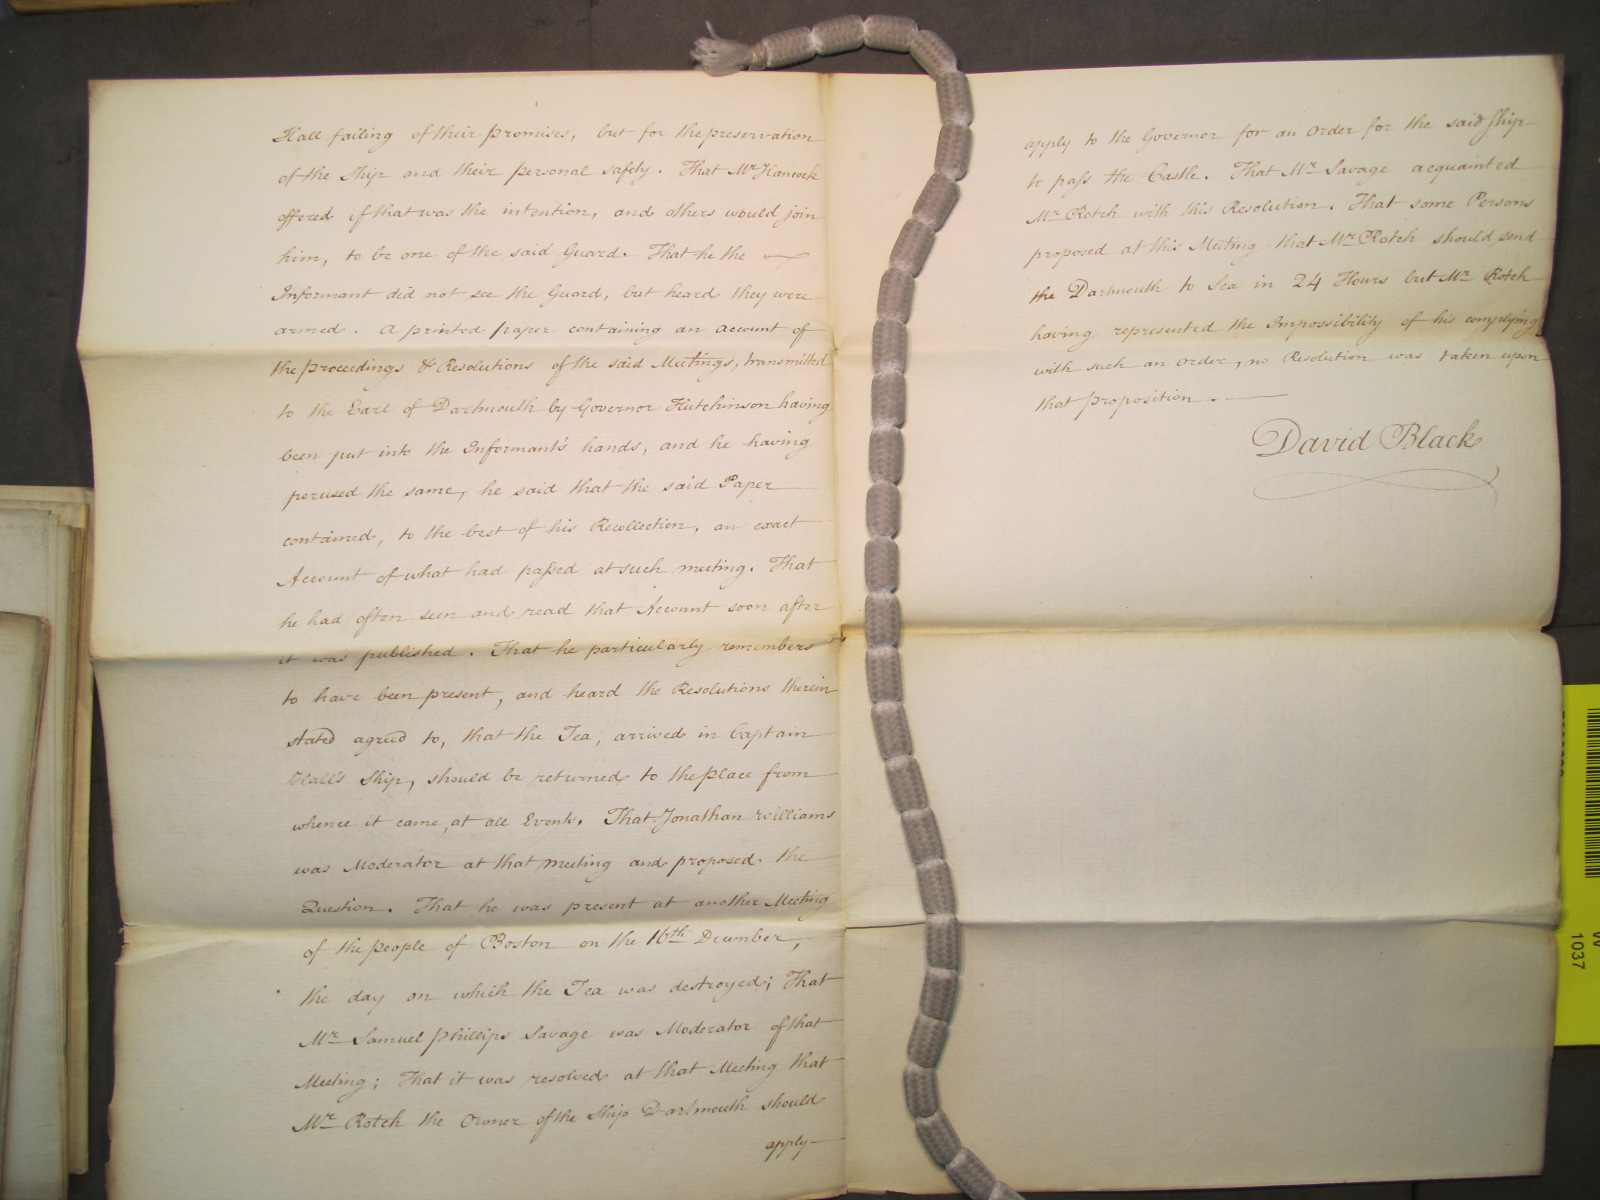 Hall failing of their promises, but for the preservation
of the Ship and their personal safety. That Mr Hancock
offered if that was the intention, and others would join
him, to be one of the said Guard. That he the
Informant did not see the Guard, but heard they were
armed. A printed paper containing an account of
the proceedings & Resolutions of the said Meetings, transmitted
to the Earl of Dartmouth by Governor Hutchinson having
been put into the Informant's hands, and he having
perused the same, he said that the said Paper
contained, to the best of his Recollection, an exact
Account of what had passed at such meeting. That
he had often seen and read that Account soon after
it was published. That he particularly remembers
to have been present, and heard the Resolutions therein
stated agreed to, that the Tea, arrived in Captain
Hall's Ship, should be returned to the place from
whence it came, at all Events. That Jonathan Williams
was Moderator at that meeting and proposed the
Question. That he was present at another Meeting
of the people of Boston on the 16th December,
the day on which the Tea was destroyed; That
Mr Samuel Phillips Savage was Moderator of that
Meeting; That it was resolved at that Meeting that
Mr Rotch the Owner of the Ship Dartmouth should
apply
apply to the Governor for an order for the said Ship
to pass the Castle. That Mr Savage acquainted
Mr Rotch with this Resolution. That some Persons
proposed at this Meeting that Mr Rotch should send
the Dartmouth to Sea in 24 Hours but Mr Rotch
having represented the Impossibility of his complying
with such an order, no Resolution was taken upon
that proposition.
David Black
1037